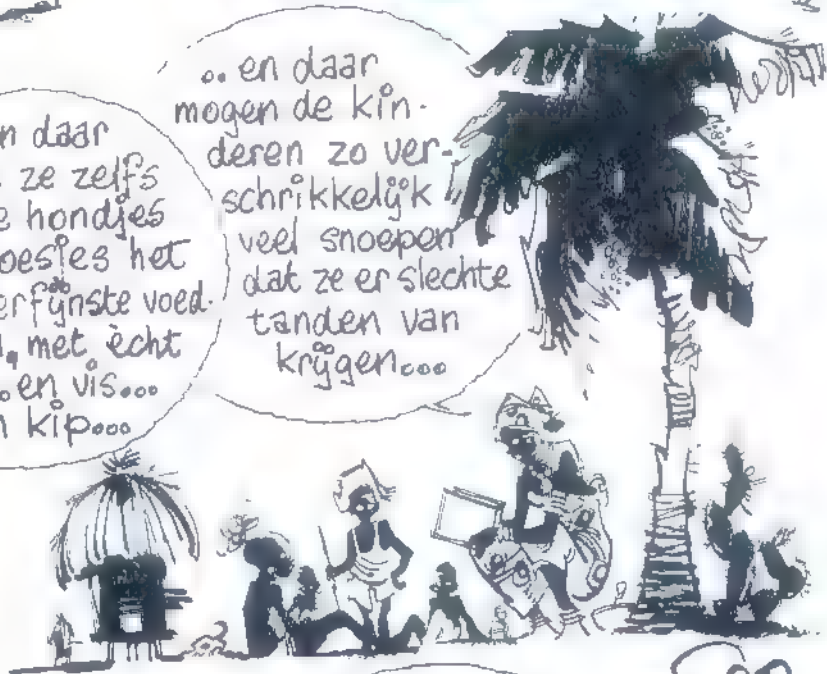 daar
ze zelfs
hondjes
het
voed.
met ècht
en vis...
kip...
.. en daar
mogen de kin-
deren zo ver-
schrikkelijk
veel snoepen
dat ze er slechte
tanden van
krijgen...